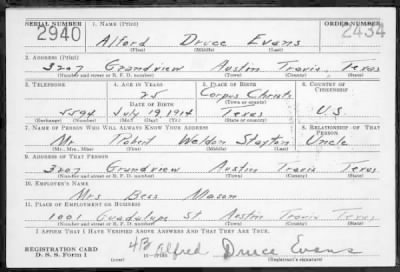 SERIAL NUMBER 1. NAME (Print) ORDER NUMBER
2940 Alford Druce Evans 2434
(First) (Middle) (Last)
2. ADDRESS (Print)
3207 Grandview Austin Travis Texas
(Number and street or R. F. D. number) (Town) (County) (State)
3. TELEPHONE 4. AGE IN YEARS 5. PLACE OF BIRTH 6. COUNTRY OF CITIZENSHIP
25 Corpus Christi
DATE OF BIRTH (Town or county)
5594 July 19, 1914 Texas U.S.
7. NAME OF PERSON WHO WILL ALWAYS KNOW YOUR ADDRESS 8. RELATIONSHIP OF THAT PERSON
Mr. Robert Weldon Stayton Uncle
(Mr., Mrs., Miss) (First) (Middle) (Last)
9. ADDRESS OF THAT PERSON
3207 Grandview Austin Travis Texas
(Number and street or R. F. D. number) (Town) (County) (State)
10. EMPLOYER'S NAME
Mrs Bess Mason
11. PLACE OF EMPLOYMENT OR BUSINESS
1001 Guadalupe St. Austin Travis Texas
(Number and street or R. F. D. number) (Town) (County) (State)
I AFFIRM THAT I HAVE VERIFIED ABOVE ANSWERS AND THAT THEY ARE TRUE.
REGISTRATION CARD
D. S. S. Form 1 Alfred Druce Evans
(Registrant's signature)